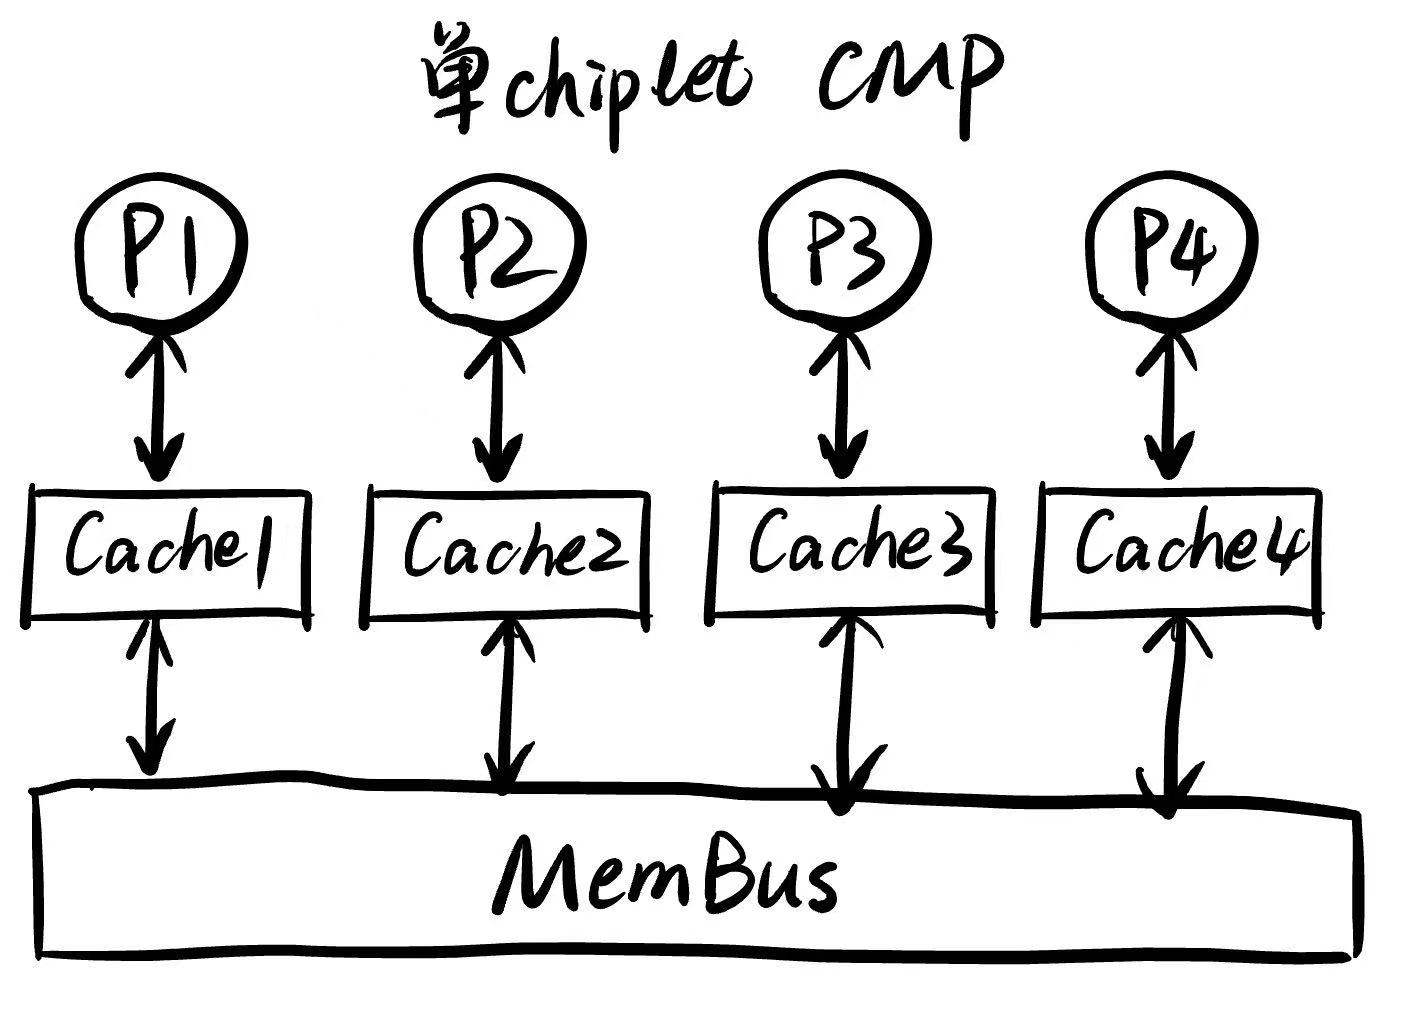 单chiplet CMP
P1 P2 P3 P4
Cache1 Cache2 Cache3 Cache4
MemBus